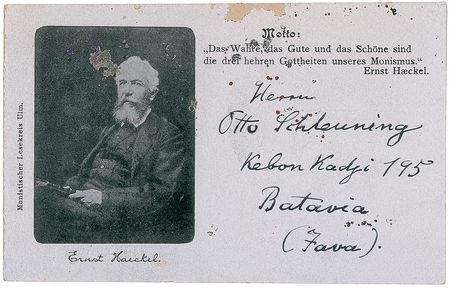 Motto:
„Das Wahre, das Gute und das Schöne sind
die drei hehren Gottheiten unseres Monismus.“
Ernst Hæckel.
Herrn
Otto Schleuning
Kebon Kadji 195
Batavia
(Java).
Monistischer Lesekreis Ulm.
Ernst Haeckel.